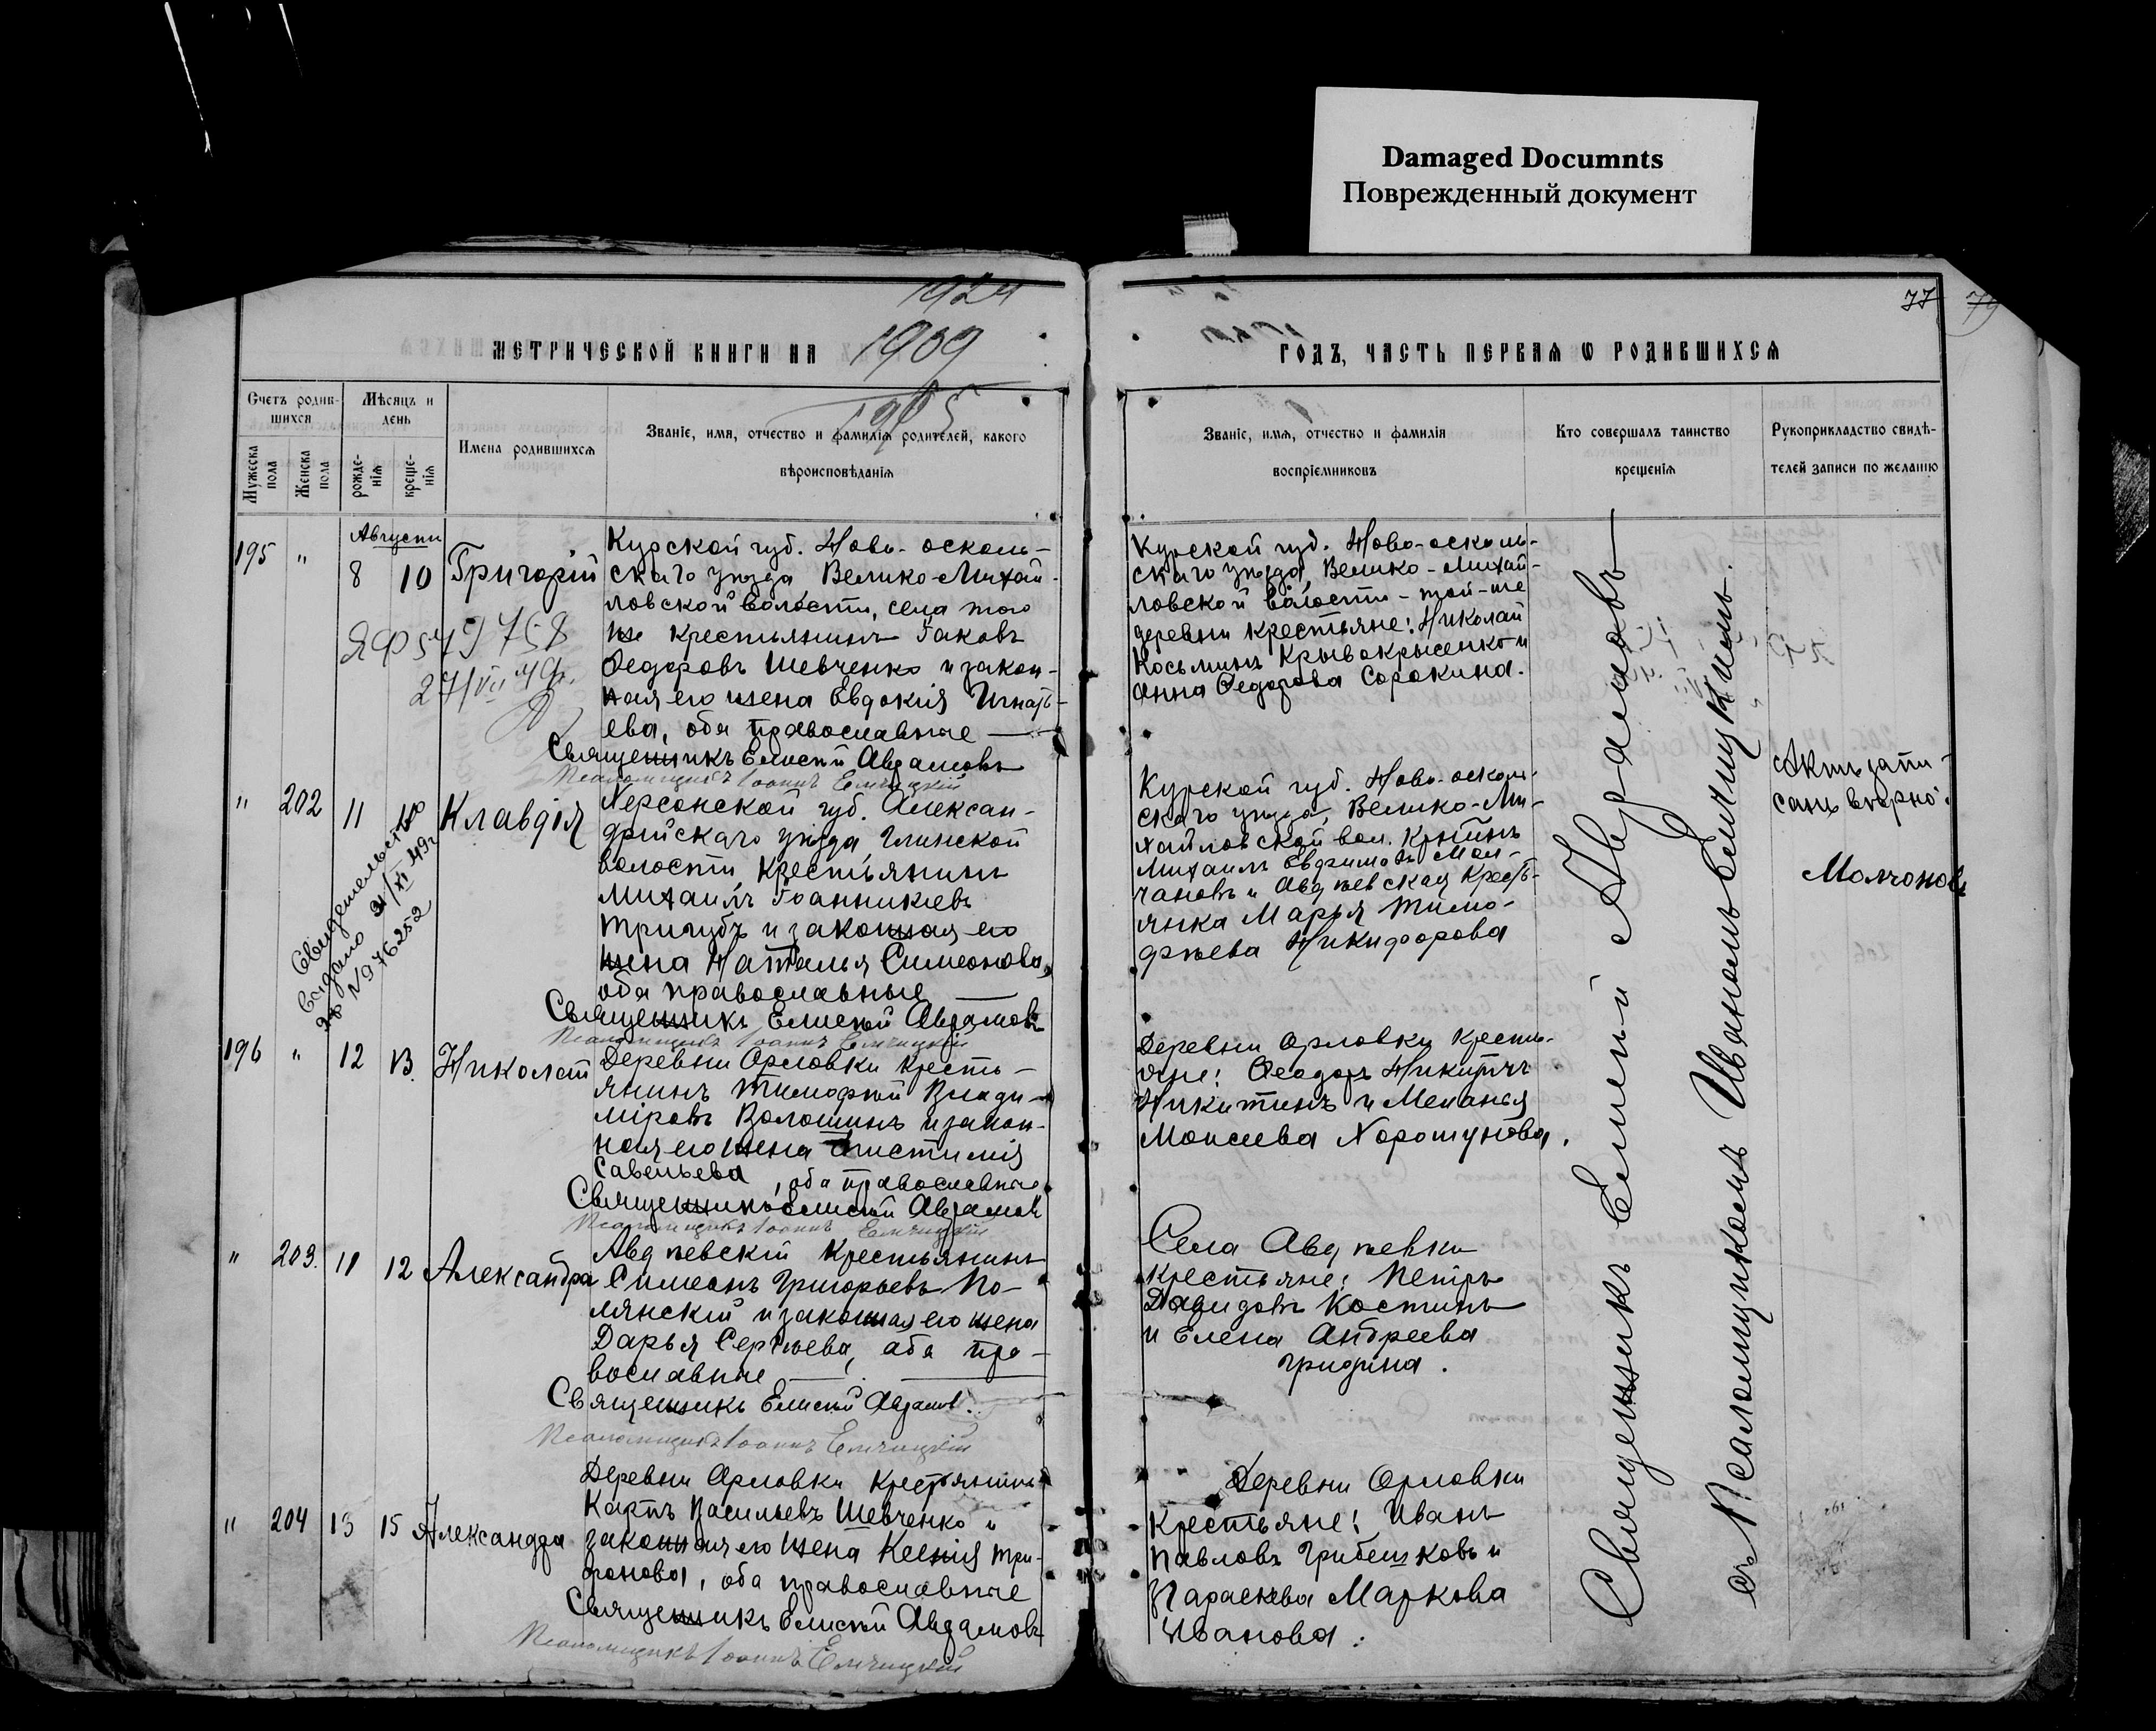 Damaged Documnts
Поврежденный документ
1924
77 79
МЕТРИЧЕСКОЙ КНИГИ НА 1909
ГОДЪ, ЧАСТЬ ПЕРВАЯ Ѡ РОДИВШИХСЯ
1905
Счетъ родив-
шихся
Мужеска
пола
Женска
пола
Мѣсяцъ и
день
рожде-
нія
креще-
нія
Имена родившихся
Званіе, имя, отчество и фамилія родителей, какого
вѣроисповѣданія
Званіе, имя, отчество и фамилія
воспріемниковъ
Кто совершалъ таинство
крещенія
Рукоприкладство свидѣ-
телей записи по желанію
Августъ
195 " 8 10 Григорій
Курской губ. Ново-осколь-
скаго уѣзда Велико-Михай-
ловской волости, села того
же крестьянинъ Іаковъ
Ѳедоровъ Шевченко и закон-
ная его жена Евдокія Игнать-
ева, оба православные
Священникъ Елисей Авраамовъ
Псаломщикъ Іоаннъ
ЯФ 579758
27/VII 49г.
Курской губ. Ново-осколь-
скаго уѣзда, Велико-Михай-
ловской волости - той-же
деревни крестьяне: Николай
Косьминъ Крывокрысенко и
Анна Ѳедорова Сорокина.
" 202 11 Клавдія
Херсонской губ. Алексан-
дрійскаго уѣзда Глинской
волости крестьянинъ
Михаилъ Іоанникіевъ
Тригубъ и законная его
жена Наталья Симеонова,
оба православные
Священникъ Елисей Авраамовъ
Псаломщикъ Іоаннъ
Свидетельство
выдано /XI 49г
№976252
Курской губ. Ново-осколь-
скаго уѣзда, Велико-Ми-
хайловской вол. кр-нинъ
Михаилъ Евфимовъ Мол-
чановъ и Авдѣевская кресть-
янка Марья Тимо-
фѣева Никифорова
Актъ запи-
санъ вѣрно:
Молчановъ
196 " 12 13. Николай
Деревни Орловки кресть-
янинъ Тимофей Влади-
міровъ Волошинъ и закон-
ная его жена
Савельева, оба православные
Священникъ Елисей Авраамовъ
Псаломщикъ Іоаннъ
Деревни Орловки кресть-
яне: Ѳеодоръ Никитичъ
Никитинъ и Меланья
Моисеева Хорошунова.
" 203. 11 12 Александра
Авдѣевскій крестьянинъ
Симеонъ Григорьевъ По-
лянскій и законная его жена
Дарья Сергѣева, оба пра-
вославные
Священникъ Елисей Авраамовъ.
Псаломщикъ Іоаннъ
Села Авдѣевки
крестьяне: Петръ
Давидовъ Костинъ
и Елена Андреева
Гридина.
" 204 13 15 Александра
Деревни Орловки крестьянинъ
Карпъ Васильевъ Шевченко и
законная его жена Ксенія Три-
фонова, оба православные
Священникъ Елисей Авраамовъ
Псаломщикъ Іоаннъ
Деревни Орловки
крестьяне: Иванъ
Павловъ Грибешковъ и
Параскева Маркова
Иванова.
Священникъ Елисей Авраамовъ
съ Псаломщикомъ Иваномъ